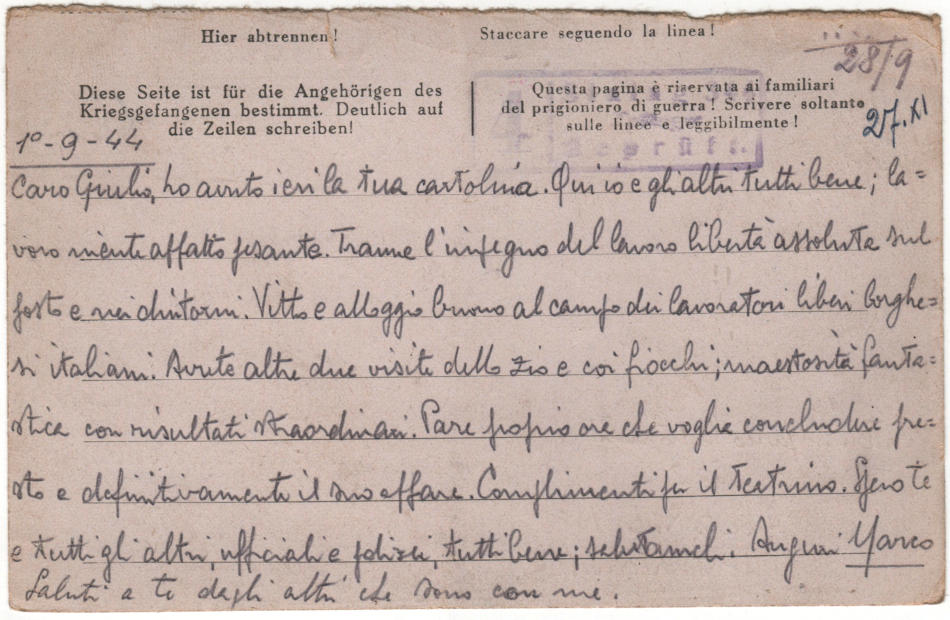 Hier abtrennen!
Staccare seguendo la linea!
28/9
Diese Seite ist für die Angehörigen des
Kriegsgefangenen bestimmt. Deutlich auf
die Zeilen schreiben!
Questa pagina è riservata ai familiari
del prigioniero di guerra! Scrivere soltanto
sulle linee e leggibilmente!
27.XI
Geprüft.
1º-9-44
Caro Giulio, ho avuto ieri la tua cartolina. Qui io e gli altri tutti bene; la=
voro niente affatto pesante. Tranne l'impegno del lavoro libertà assoluta sul
posto e nei dintorni. Vitto e alloggio buono al campo dei lavoratori liberi borghe=
si italiani. Avute altre due visite dello zio e coi fiocchi; maestosità fanta=
stica con risultati straordinari. Pare proprio ora che voglia concludere pre=
sto e definitivamente il suo affare. Complimenti per il teatrino. Spero te
e tutti gli altri, ufficiali e polizei, tutti bene; salutameli. Auguri Marco
Saluti a te dagli altri che sono con me.